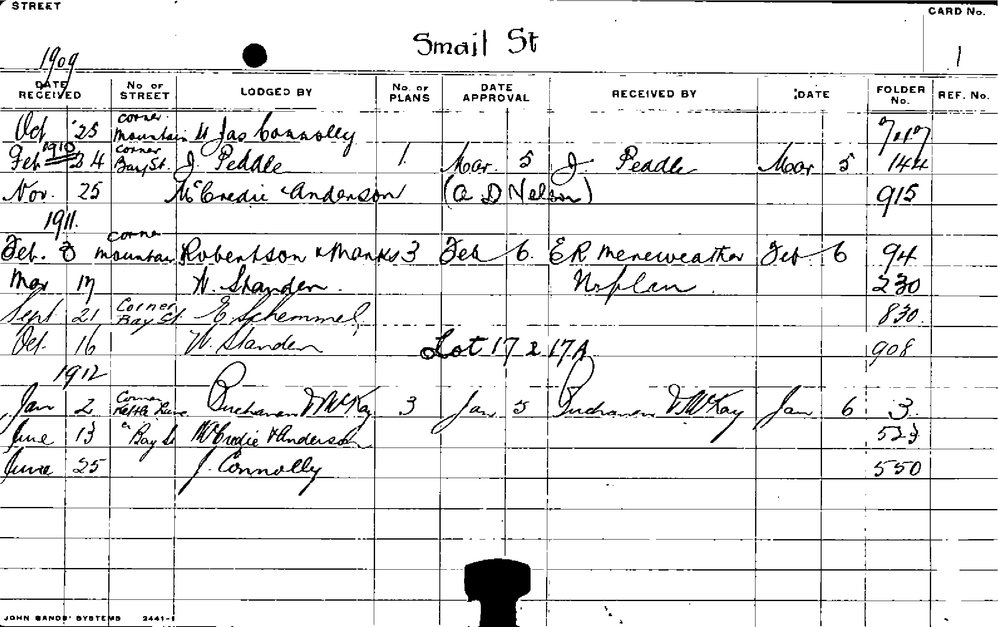 STREET CARD No.
Smail St 1
1909
DATE RECEIVED No OF STREET LODGED BY No. OF PLANS DATE APPROVAL RECEIVED BY DATE FOLDER No. REF. No.
Oct 25 corner mountain Jas Connolly
1910
Feb 24 corner Bay St. J. Peddle 1. Mar. 5 J. Peddle Mar 5 144
Nov. 25 McCredie & Anderson (A D Nelson) 915
1911.
Feb. 3 corner mountain Robertson & Marks 3 Feb 6. E R Mereweather Feb 6 94
Mar 17 W. Standen. No plan. 230
Sept 21 Corner Bay St E Schemmel, 830.
Oct. 16 W. Standen Lot 17 & 17A 908
1912
Jan 2 Corner Buchanan & McKay 3 Jan 5 Buchanan & McKay Jan 6 3.
June 13 Bay St McCredie & Anderson 523
June 25 J. Connolly 550
JOHN SANDS' SYSTEMS 2441-1